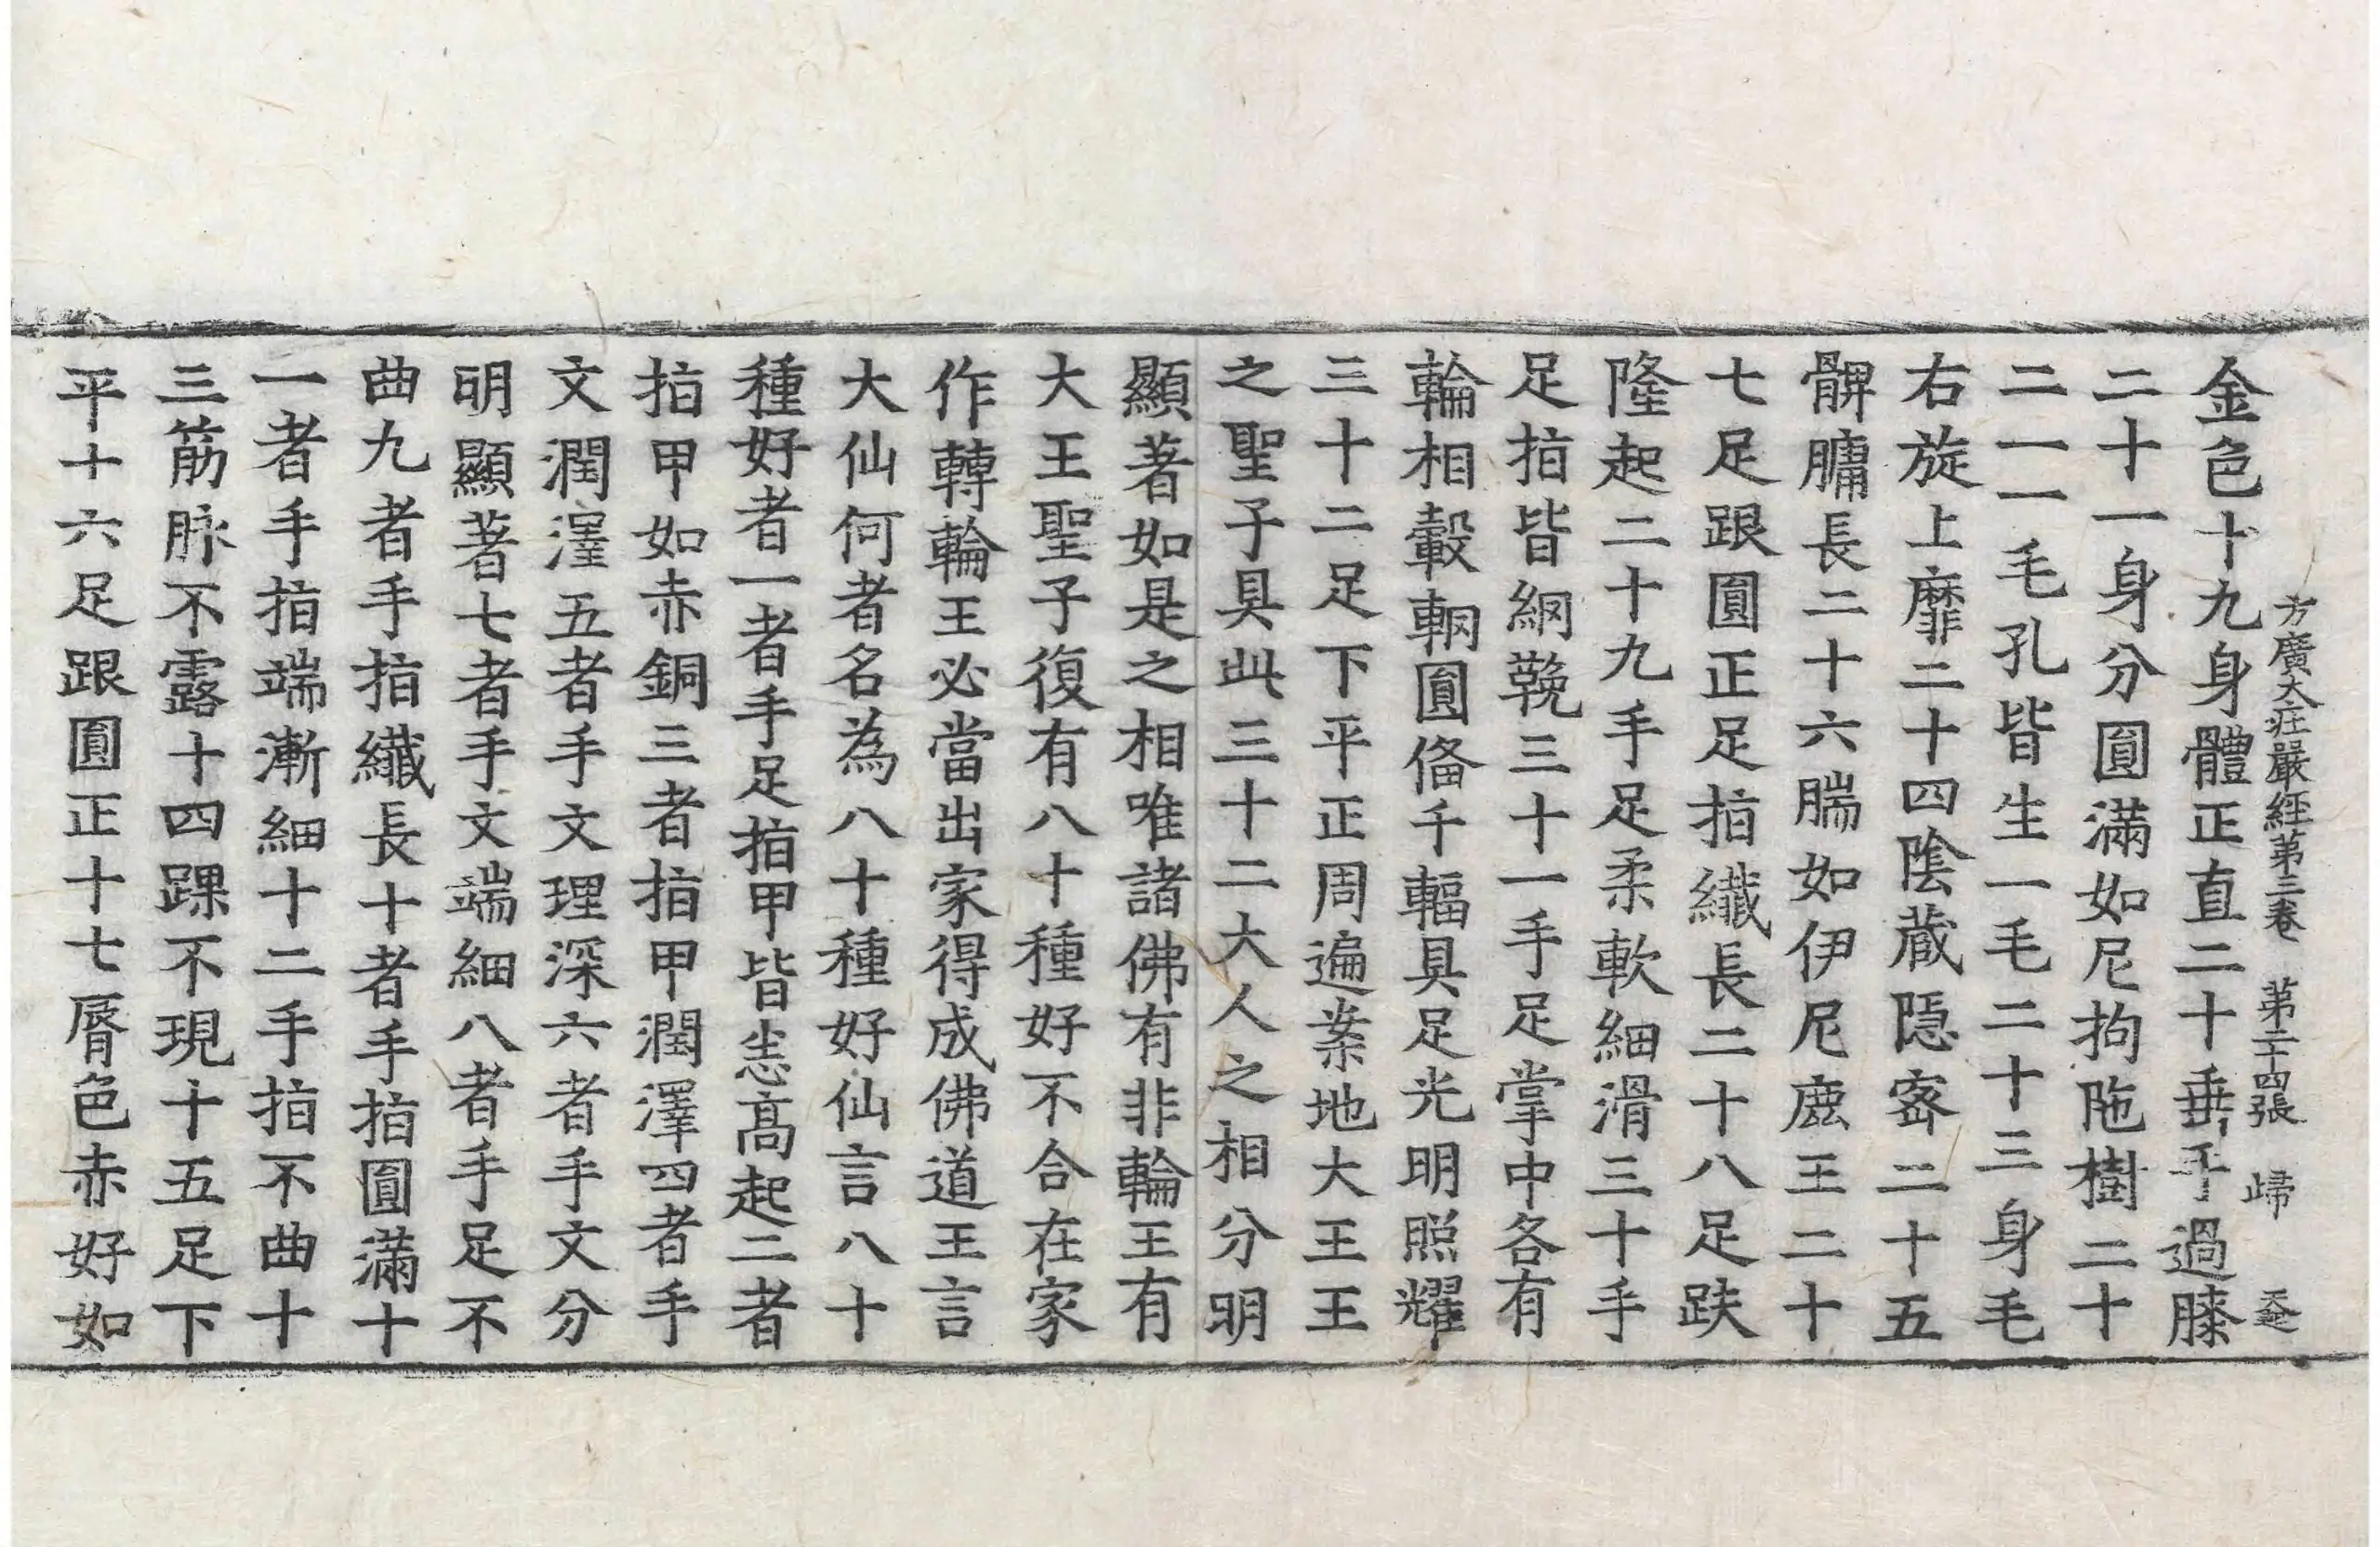 方廣大庄嚴經第三卷 第二十四張 歸
金色十九身體正直二十垂手過膝
二十一身分圓滿如尼拘陁樹二十
二一一毛孔皆生一毛二十三身毛
右旋上靡二十四陰蔵隱宻二十五
髀𦟛長二十六腨如伊尼鹿王二十
七足跟圓正足指纖長二十八足趺
隆起二十九手足柔軟細滑三十手
足指皆網鞔三十一手足掌中各有
輪相轂輞圓俻千輻具足光明照耀
三十二足下平正周遍案地大王王
之聖子具此三十二大人之相分明
顯著如是之相唯諸佛有非輪王有
大王聖子復有八十種好不合在家
作轉輪王必當出家得成佛道王言
大仙何者名為八十種好仙言八十
種好者一者手足指甲皆悉高起二者
指甲如赤銅三者指甲潤澤四者手
文潤澤五者手文理深六者手文分
明顯著七者手文端細八者手足不
曲九者手指纖長十者手指圓滿十
一者手指端漸細十二手指不曲十
三筋脉不露十四踝不現十五足下
平十六足跟圓正十七脣色赤好如